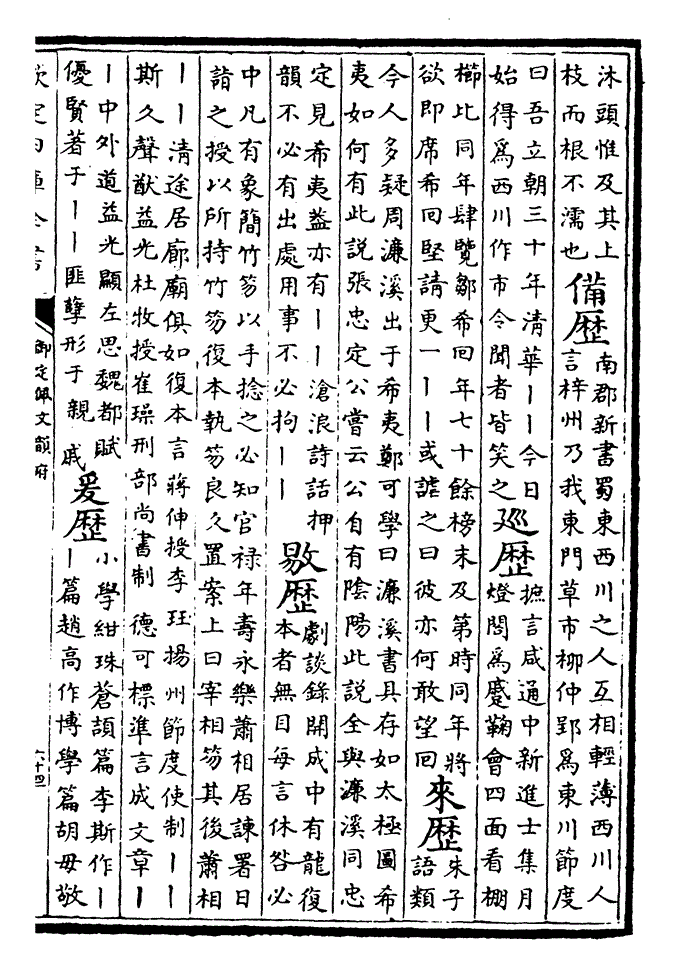 沐頭惟及其上
枝而根不濡也
備歷
南郡新書蜀東西川之人互相輕薄西川人
言梓州乃我東門草市栁仲郢爲東川節度
曰吾立朝三十年清華丨丨今日
始得爲西川作市令聞者皆笑之
廵歷
摭言咸通中新進士集月
燈閣爲蹙鞠會四面看棚
櫛比同年肆覽鄒希囘年七十餘榜末及第時同年將
欲即席希囘堅請更一丨丨或謔之曰彼亦何敢望囘
來歷
朱子
語類
今人多疑周濂溪出于希夷鄭可學曰濂溪書具存如太極圖希
夷如何有此說張忠定公嘗云公自有陰陽此說全與濂溪同忠
定見希夷葢亦有丨丨 滄浪詩話押
韻不必有出處用事不必拘丨丨
敡歷
劇談錄開成中有龍復
本者無目每言休咎必
中凡有象簡竹笏以手捻之必知官禄年壽永樂蕭相居諫署日
詣之授以所持竹笏復本執笏良久置案上曰宰相笏其後蕭相
丨丨清途居廊廟俱如復本言蔣伸授李珏揚州節度使制丨丨
斯久聲猷益光杜牧授崔璪刑部尚書制 德可標準言成文章丨
丨中外道益光顯左思魏都賦
優賢著于丨丨匪孽形于親戚
爰歷
小學紺珠蒼頡篇李斯作丨
丨篇趙高作博學篇胡毋敬
欽定四庫全書
御定佩文韻府
六十四